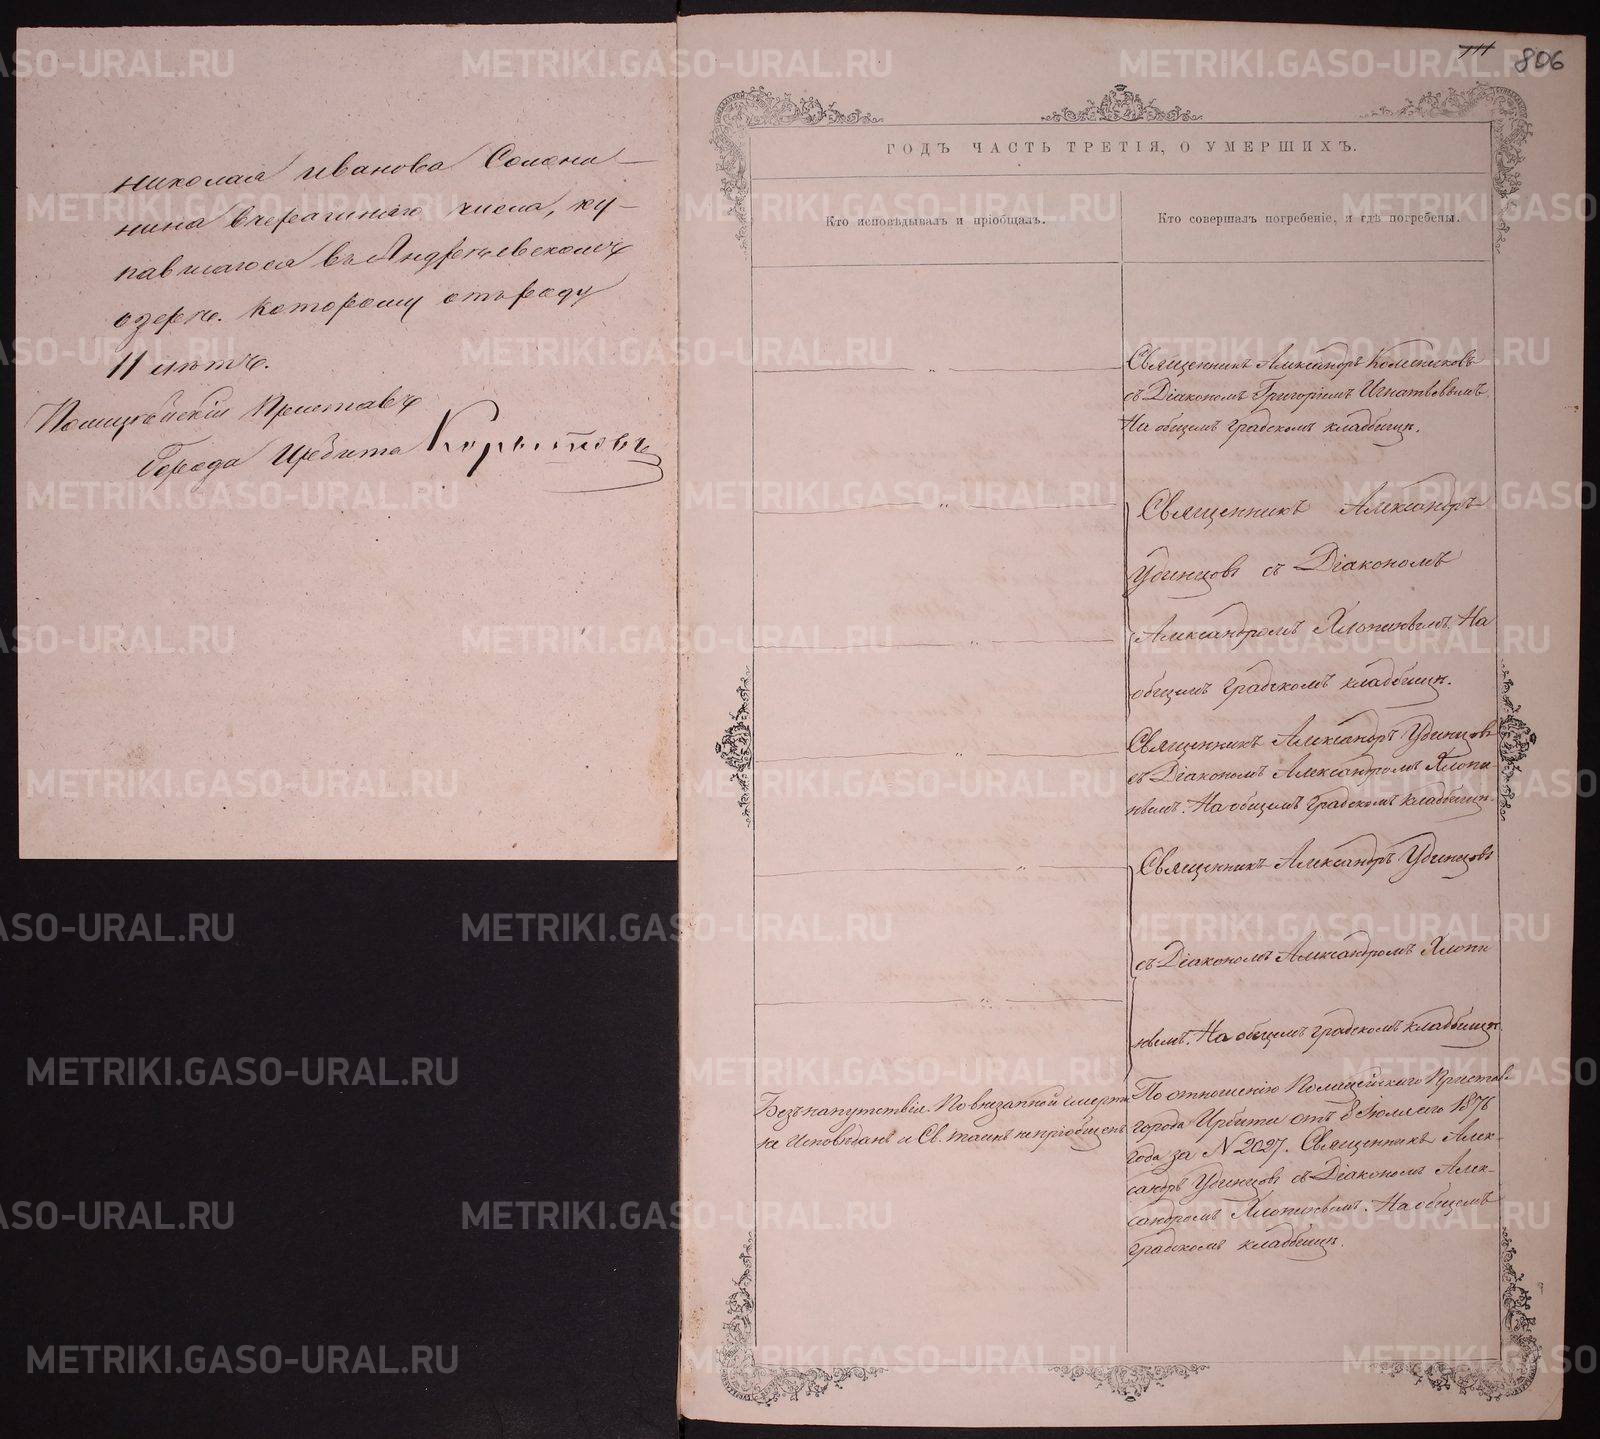 Николая Иванова Солони-
нина вчерашняго числа, ку-
павшагося въ Андреевскомъ
озере. Которому отъ роду
11 летъ.
Полицейскій Приставъ
Города Ирбита
806
ГОДЪ ЧАСТЬ ТРЕТІЯ, О УМЕРШИХЪ.
Кто исповѣдывалъ и пріобщалъ.
Кто совершалъ погребеніе, и гдѣ погребены.
Священникъ Александръ
съ Діакономъ Григоріемъ Игнатьевымъ.
На общемъ градскомъ кладбищѣ.
Священникъ Александръ
Удинцовъ съ Діакономъ
Александромъ Хлопинымъ. На
общемъ градскомъ кладбищѣ.
Священникъ Александръ Удинцовъ
съ Діакономъ Александромъ Хлопи-
нымъ. На общемъ градскомъ кладбищѣ.
Священникъ Александръ Удинцовъ
съ Діакономъ Александромъ Хлопи
нымъ. На общемъ градскомъ кладбищѣ
Безъ напутствія. По внезапной смерти
не Исповѣданъ и Св. таинъ не пріобщенъ
По отношенію Полицейскаго Пристава
города Ирбити отъ 8 Іюля сего 1876
года за № 2027. Священникъ Алек-
сандръ Удинцовъ съ Діакономъ Алек-
сандромъ Хлопинымъ. На общемъ
градскомъ кладбищѣ.
METRIKI.GASO-URAL.RU